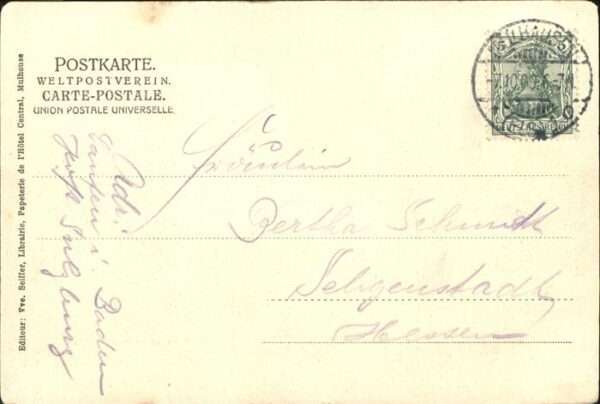 POSTKARTE.
WELTPOSTVEREIN.
CARTE-POSTALE.
UNION POSTALE UNIVERSELLE.
Fräulein
Bertha Schmidt
Seligenstadt
Hessen
Adr:
i. Baden
Post Sulzburg
Editeur: Vve. Seiffer, Librairie, Papeterie de l'Hôtel Central, Mulhouse
5 5